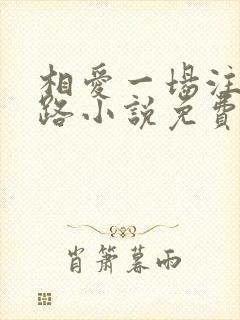 相愛一場注
路小說免費
肖簫暮雨